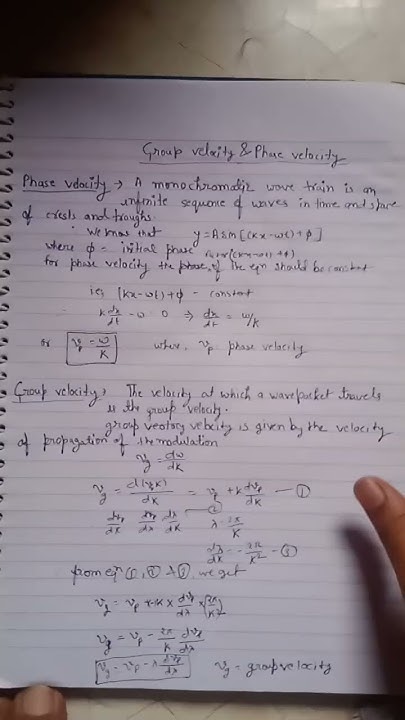 Group velocity & Phase velocity
Phase velocity → A monochromatic wave train is an
infinite sequence of waves in time and space
of crests and troughs.
We know that y = A sin [(kx-ωt)+φ]
where φ = initial phase
for phase velocity the phase of the eqn should be constant
ie, (kx-ωt)+φ - constant
k dx/dt - ω = 0 ⇒ dx/dt = ω/k
or vp = ω/k where, vp - phase velocity
Group velocity, The velocity at which a wavepacket travels
is the group velocity.
group velocity is given by the velocity
of propagation of the modulation
vg = dω/dk
vg = d(vpk)/dk = vp + k dvp/dk — ①
dvp/dk dvp/dλ dλ/dk — ② λ = 2π/k
dλ/dk = -2π/k² - ③
from eqn ①, ② & ③, we get
vg = vp + k × dvp/dλ × (2π/k²)
vg = vp - 2π/k dvp/dλ
vg = vp - λ dvp/dλ vg = group velocity